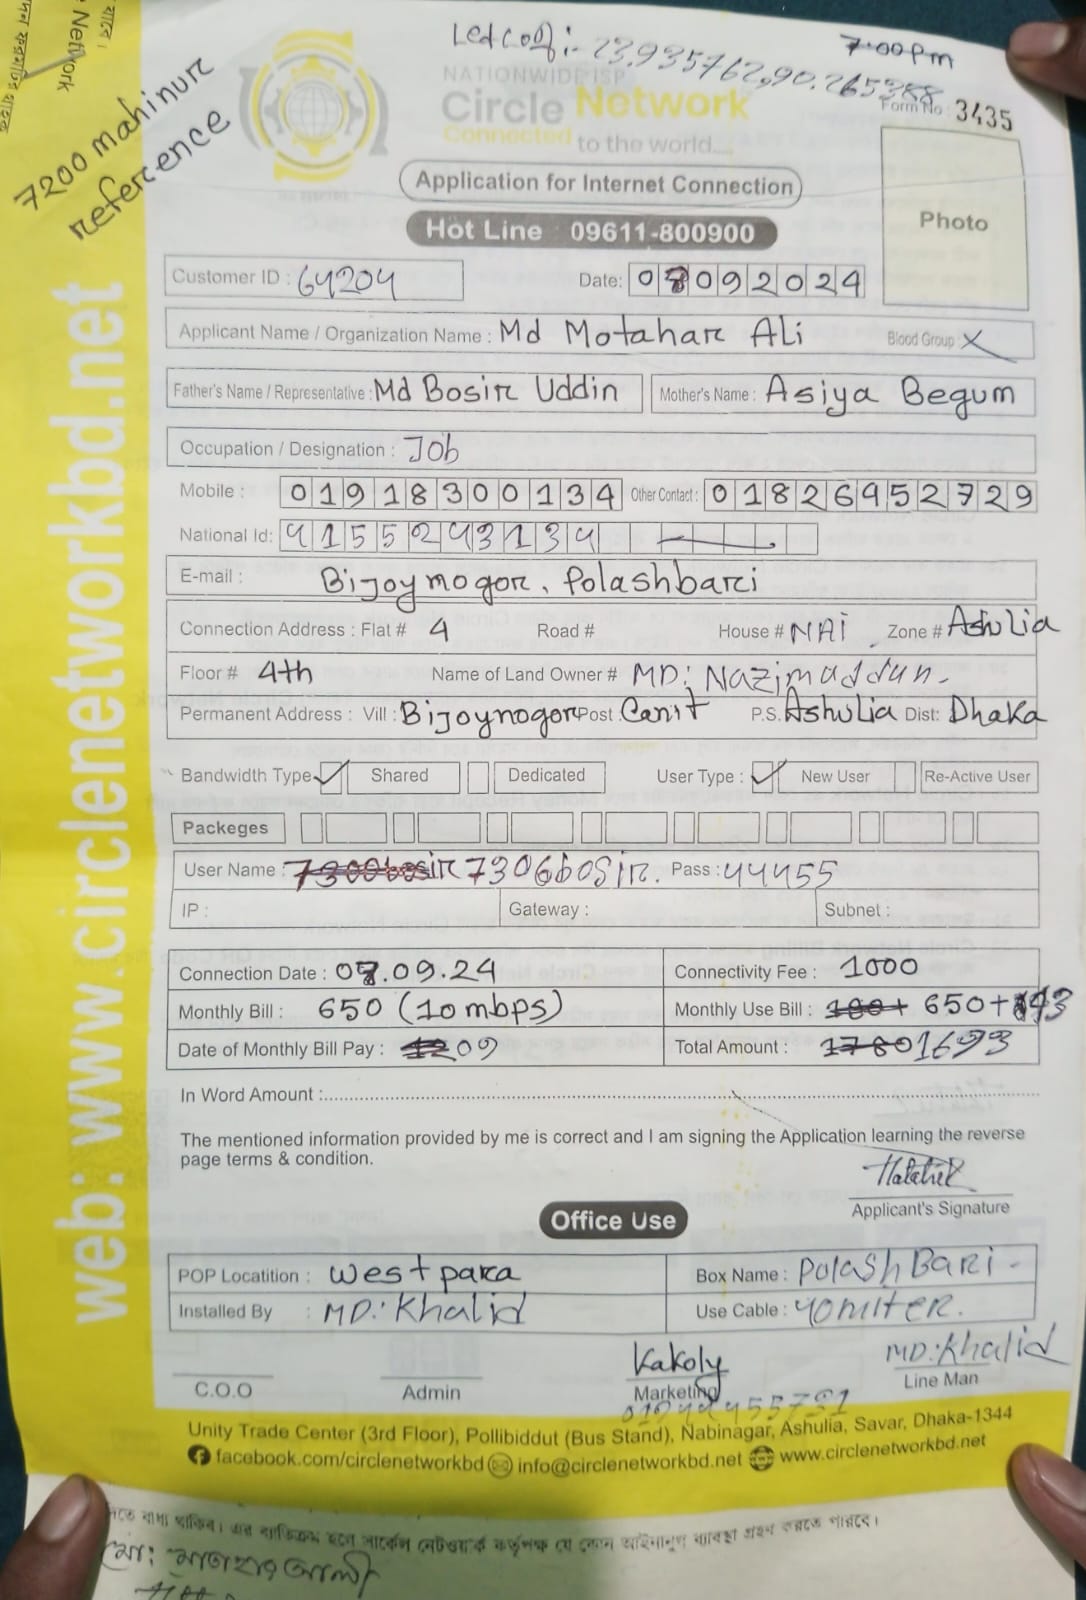 7:00 pm
23.935762,90.265388
NATIONWIDE ISP
Circle Network
Connected to the world...
Form No : 3435
7200 mahinur
reference
Network
Application for Internet Connection
Photo
Hot Line 09611-800900
Customer ID : 64204 Date: 07092024
Applicant Name / Organization Name : Md Motahar Ali Blood Group : X
Father's Name / Representative : Md Bosir Uddin Mother's Name : Asiya Begum
Occupation / Designation : Job
Mobile : 01918300134 Other Contact : 01826952729
National Id: 4155243134
E-mail : Bijoynogor, Polashbari
Connection Address : Flat # 4 Road # House # NAI Zone # Ashulia
Floor # 4th Name of Land Owner # MD: Nazimuddun.
Permanent Address : Vill : Bijoynogor Post : Cant P.S. Ashulia Dist: Dhaka
Bandwidth Type ✓ Shared Dedicated User Type : ✓ New User Re-Active User
Packeges
User Name : 7300bosir 7306bosir. Pass : 44455
IP : Gateway : Subnet :
Connection Date : 07.09.24 Connectivity Fee : 1000
Monthly Bill : 650 (10mbps) Monthly Use Bill : 100+ 650+
Date of Monthly Bill Pay : 09 Total Amount : 1780 1693
In Word Amount :
The mentioned information provided by me is correct and I am signing the Application learning the reverse
page terms & condition.
Applicant's Signature
Office Use
POP Locatition : westpara Box Name : Polash Bari -
Installed By : MD: Khalid Use Cable : 40miter.
Kakoly MD: Khalid
C.O.O Admin Marketing Line Man
Unity Trade Center (3rd Floor), Pollibiddut (Bus Stand), Nabinagar, Ashulia, Savar, Dhaka-1344
facebook.com/circlenetworkbd info@circlenetworkbd.net www.circlenetworkbd.net
web: www.circlenetworkbd.net
বাধ্য থাকিব। এর ব্যতিক্রম হলে সার্কেল নেটওয়ার্ক কর্তৃপক্ষ যে কোন আইনানুগ ব্যবস্থা গ্রহণ করতে পারবে।
মো: মোতাহার আলী